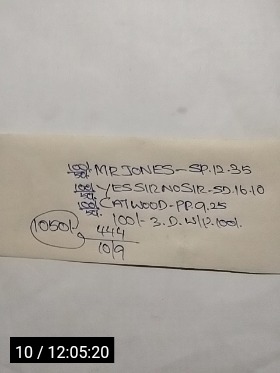 100/- 50/- MR JONES - SP.12.35
100/- 50/- YES SIR NO SIR - SD.16.10
100/- 50/- CATWOOD - PP.9.25
100/- 3.D. W/P. 100/-
1050/-
444
10/9
10 / 12:05:20